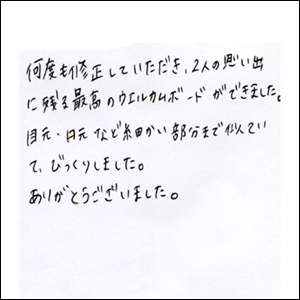 何度も修正していただき、2人の思い出
に残る最高のウエルカムボードができました。
目元・口元など細かい部分まで似てい
て、びっくりしました。
ありがとうございました。